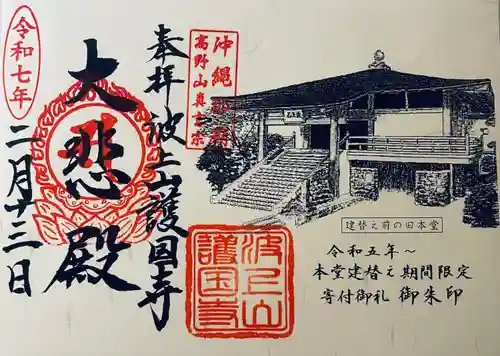 令和七年
二月十三日
大悲殿
奉拝
波上山護国寺
沖縄
高野山真言宗
波上山
護国寺
建替え前の旧本堂
令和五年〜
本堂建替え期間限定
寄付御礼 御朱印